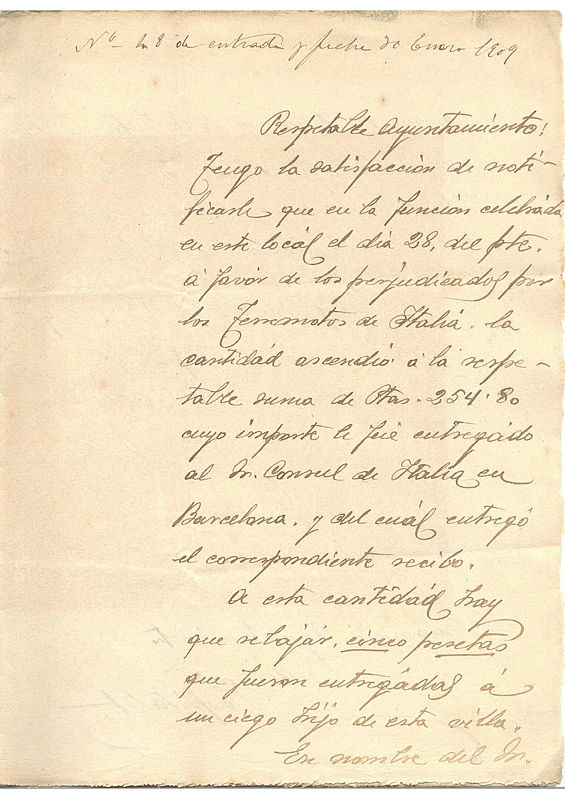 Nº 108 de entrada y fecha 30 Enero 1909
Respetable Ayuntamiento!
Tengo la satisfacción de noti-
ficarle que en la función celebrada
en este locál el dia 28, del pte.
á favor de los perjudicados por
los Terremotos de Italiá. la
cantidád ascendió á la respe-
table suma de Ptas. 254'80
cuyo importe le fué entregádo
al Sr. Consul de Italia en
Barcelona. y del cuál entregó
el correspondiente recibo.
A esta cantidád hay
que rebajár, cinco pesetas
que fueron entregádas á
un ciego hijo de esta villa.
En nombre del Sr.